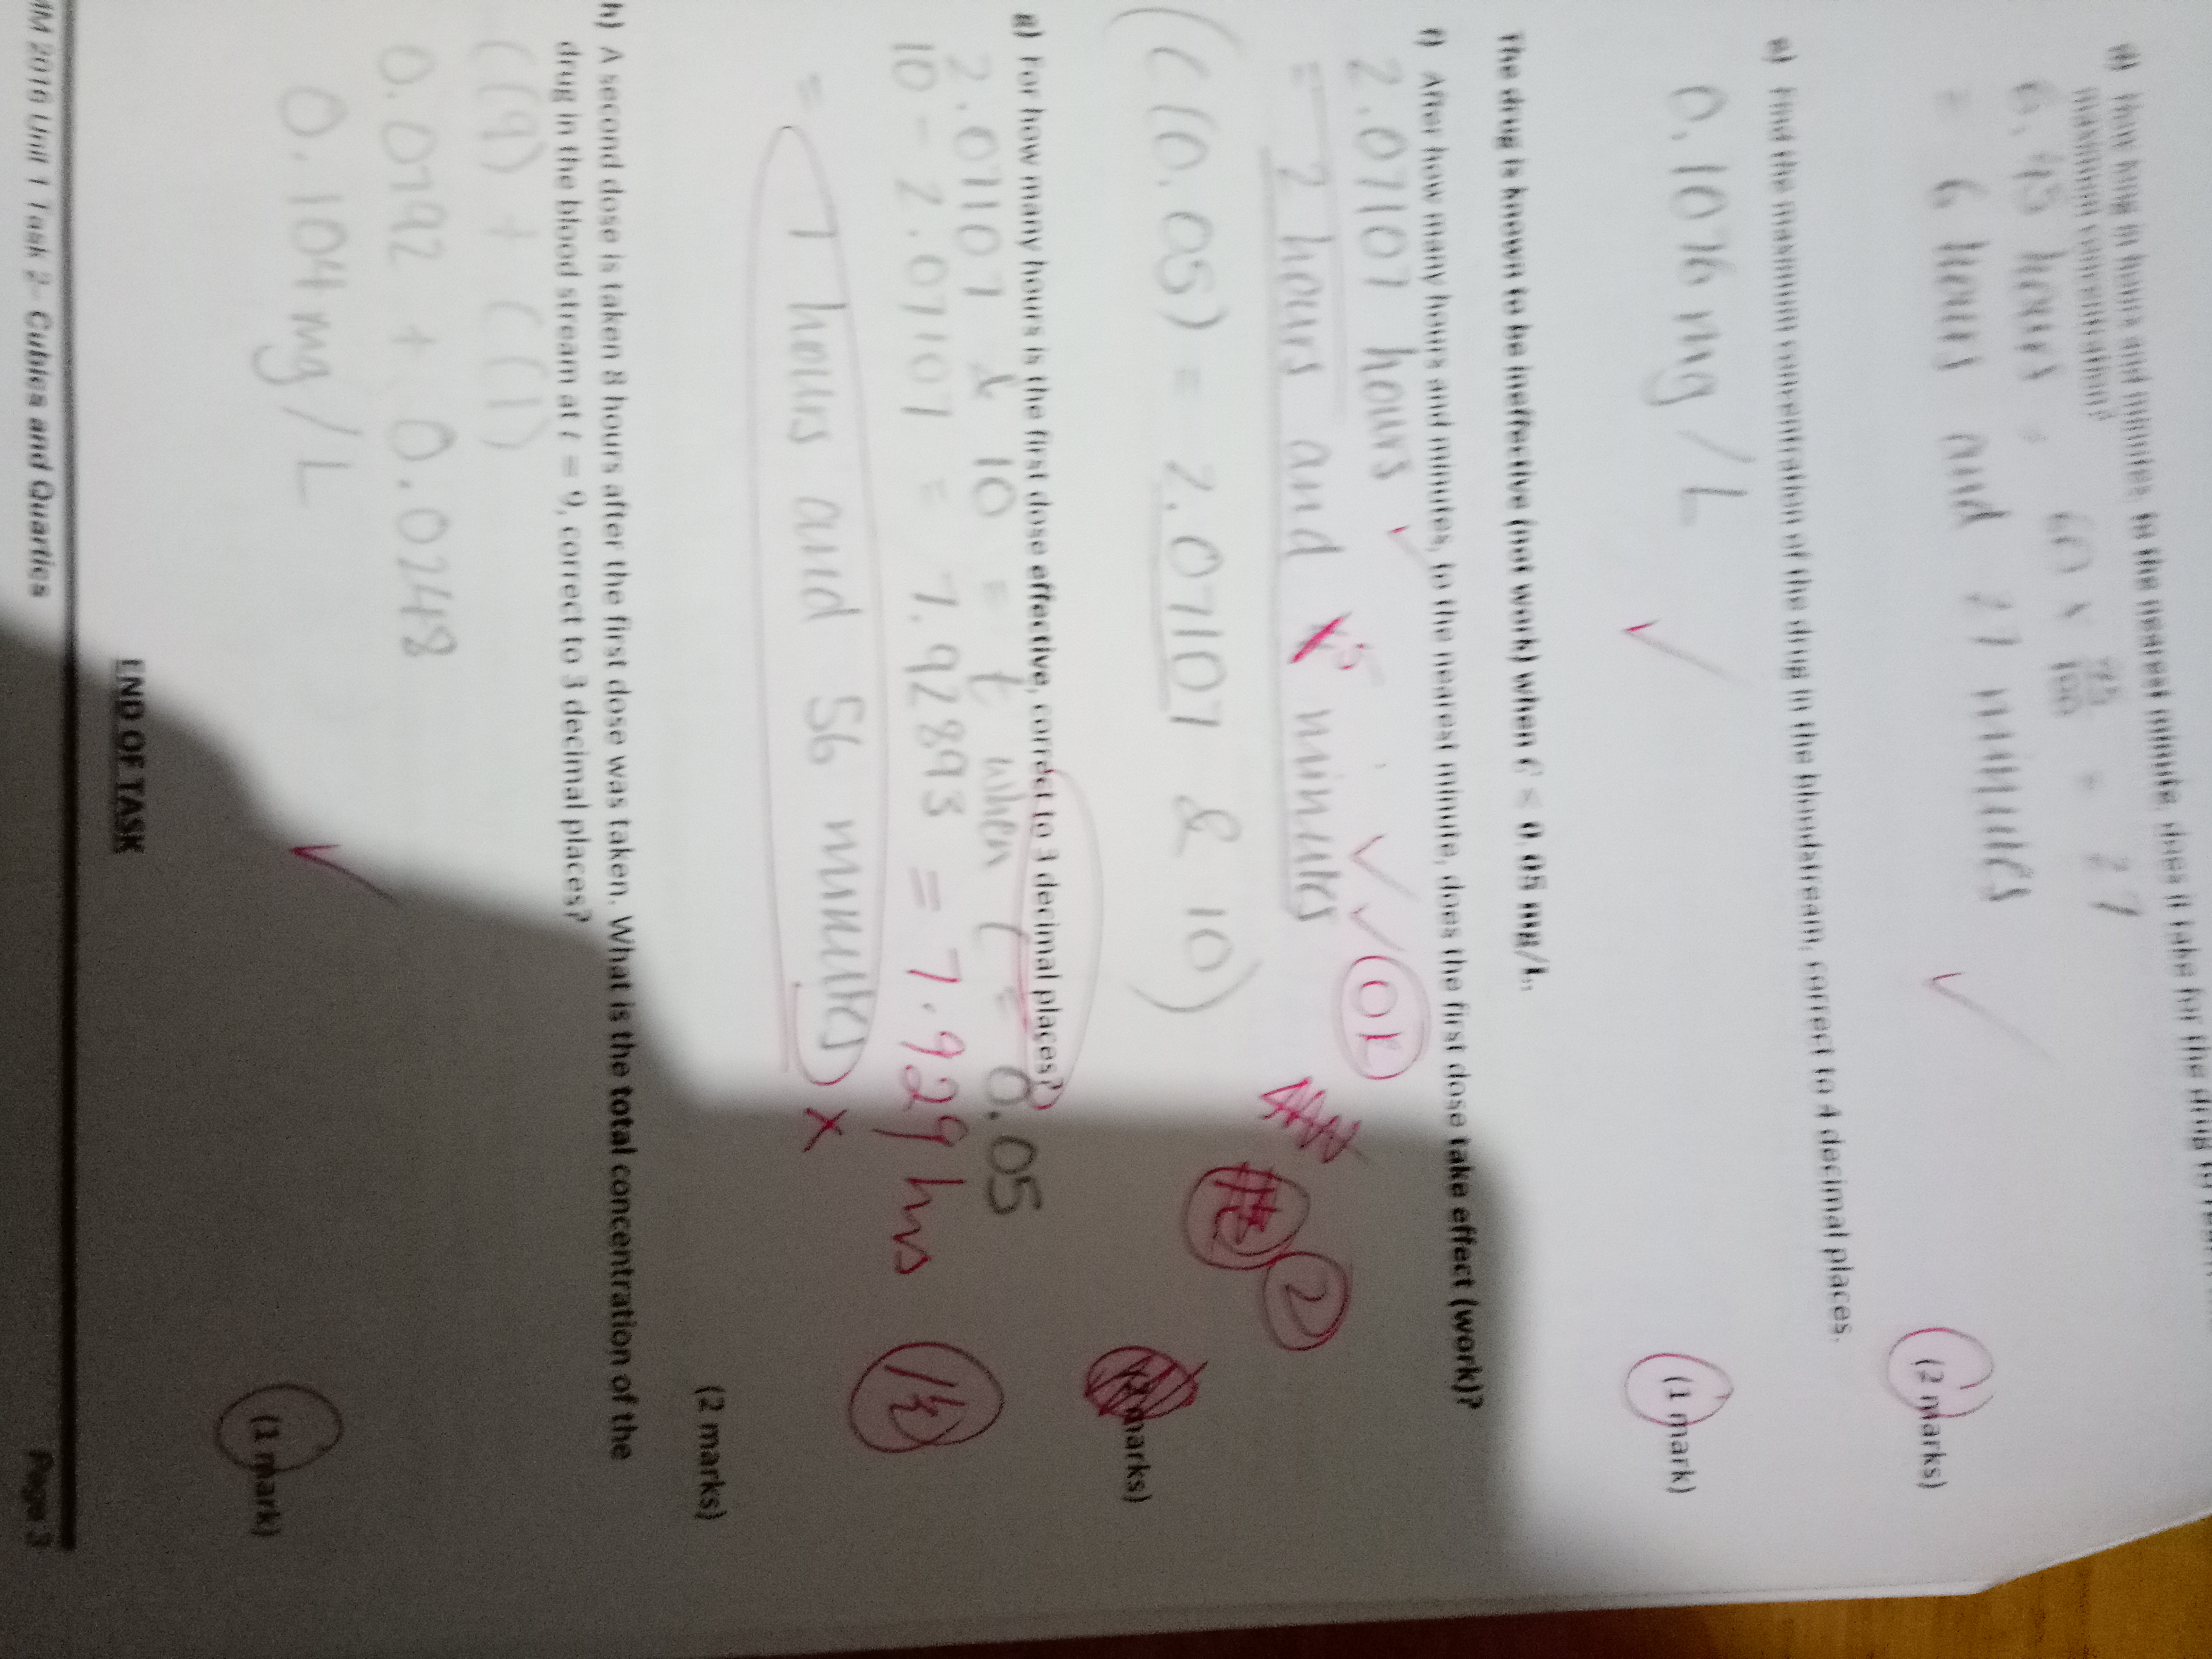 d) How long in hours and minutes, to the nearest minute, does it take for the drug to
maximum concentration?
6.45 hours 60 × 45/100 = 27
= 6 hours and 27 minutes
(2 marks)
e) Find the maximum concentration of the drug in the bloodstream, correct to 4 decimal places.
0.1076 mg/L
(1 mark)
The drug is known to be ineffective (not work) when C < 0.05 mg/L.
f) After how many hours and minutes, to the nearest minute, does the first dose take effect (work)?
2.07107 hours
= 2 hours and 5 minutes
2
(C(0.05) = 2.07107 & 10)
marks)
g) For how many hours is the first dose effective, correct to 3 decimal places?
2.07107 & 10 = t when C = 0.05
10 - 2.07107 = 7.92893 = 7.929 hrs
= 7 hours and 56 minutes x
(2 marks)
h) A second dose is taken 8 hours after the first dose was taken. What is the total concentration of the
drug in the blood stream at t = 9, correct to 3 decimal places?
C(9) + C(1)
0.0792 + 0.0248
0.104 mg/L
(1 mark)
END OF TASK
MM 2016 Unit 1 Task 2- Cubics and Quartics Page 3